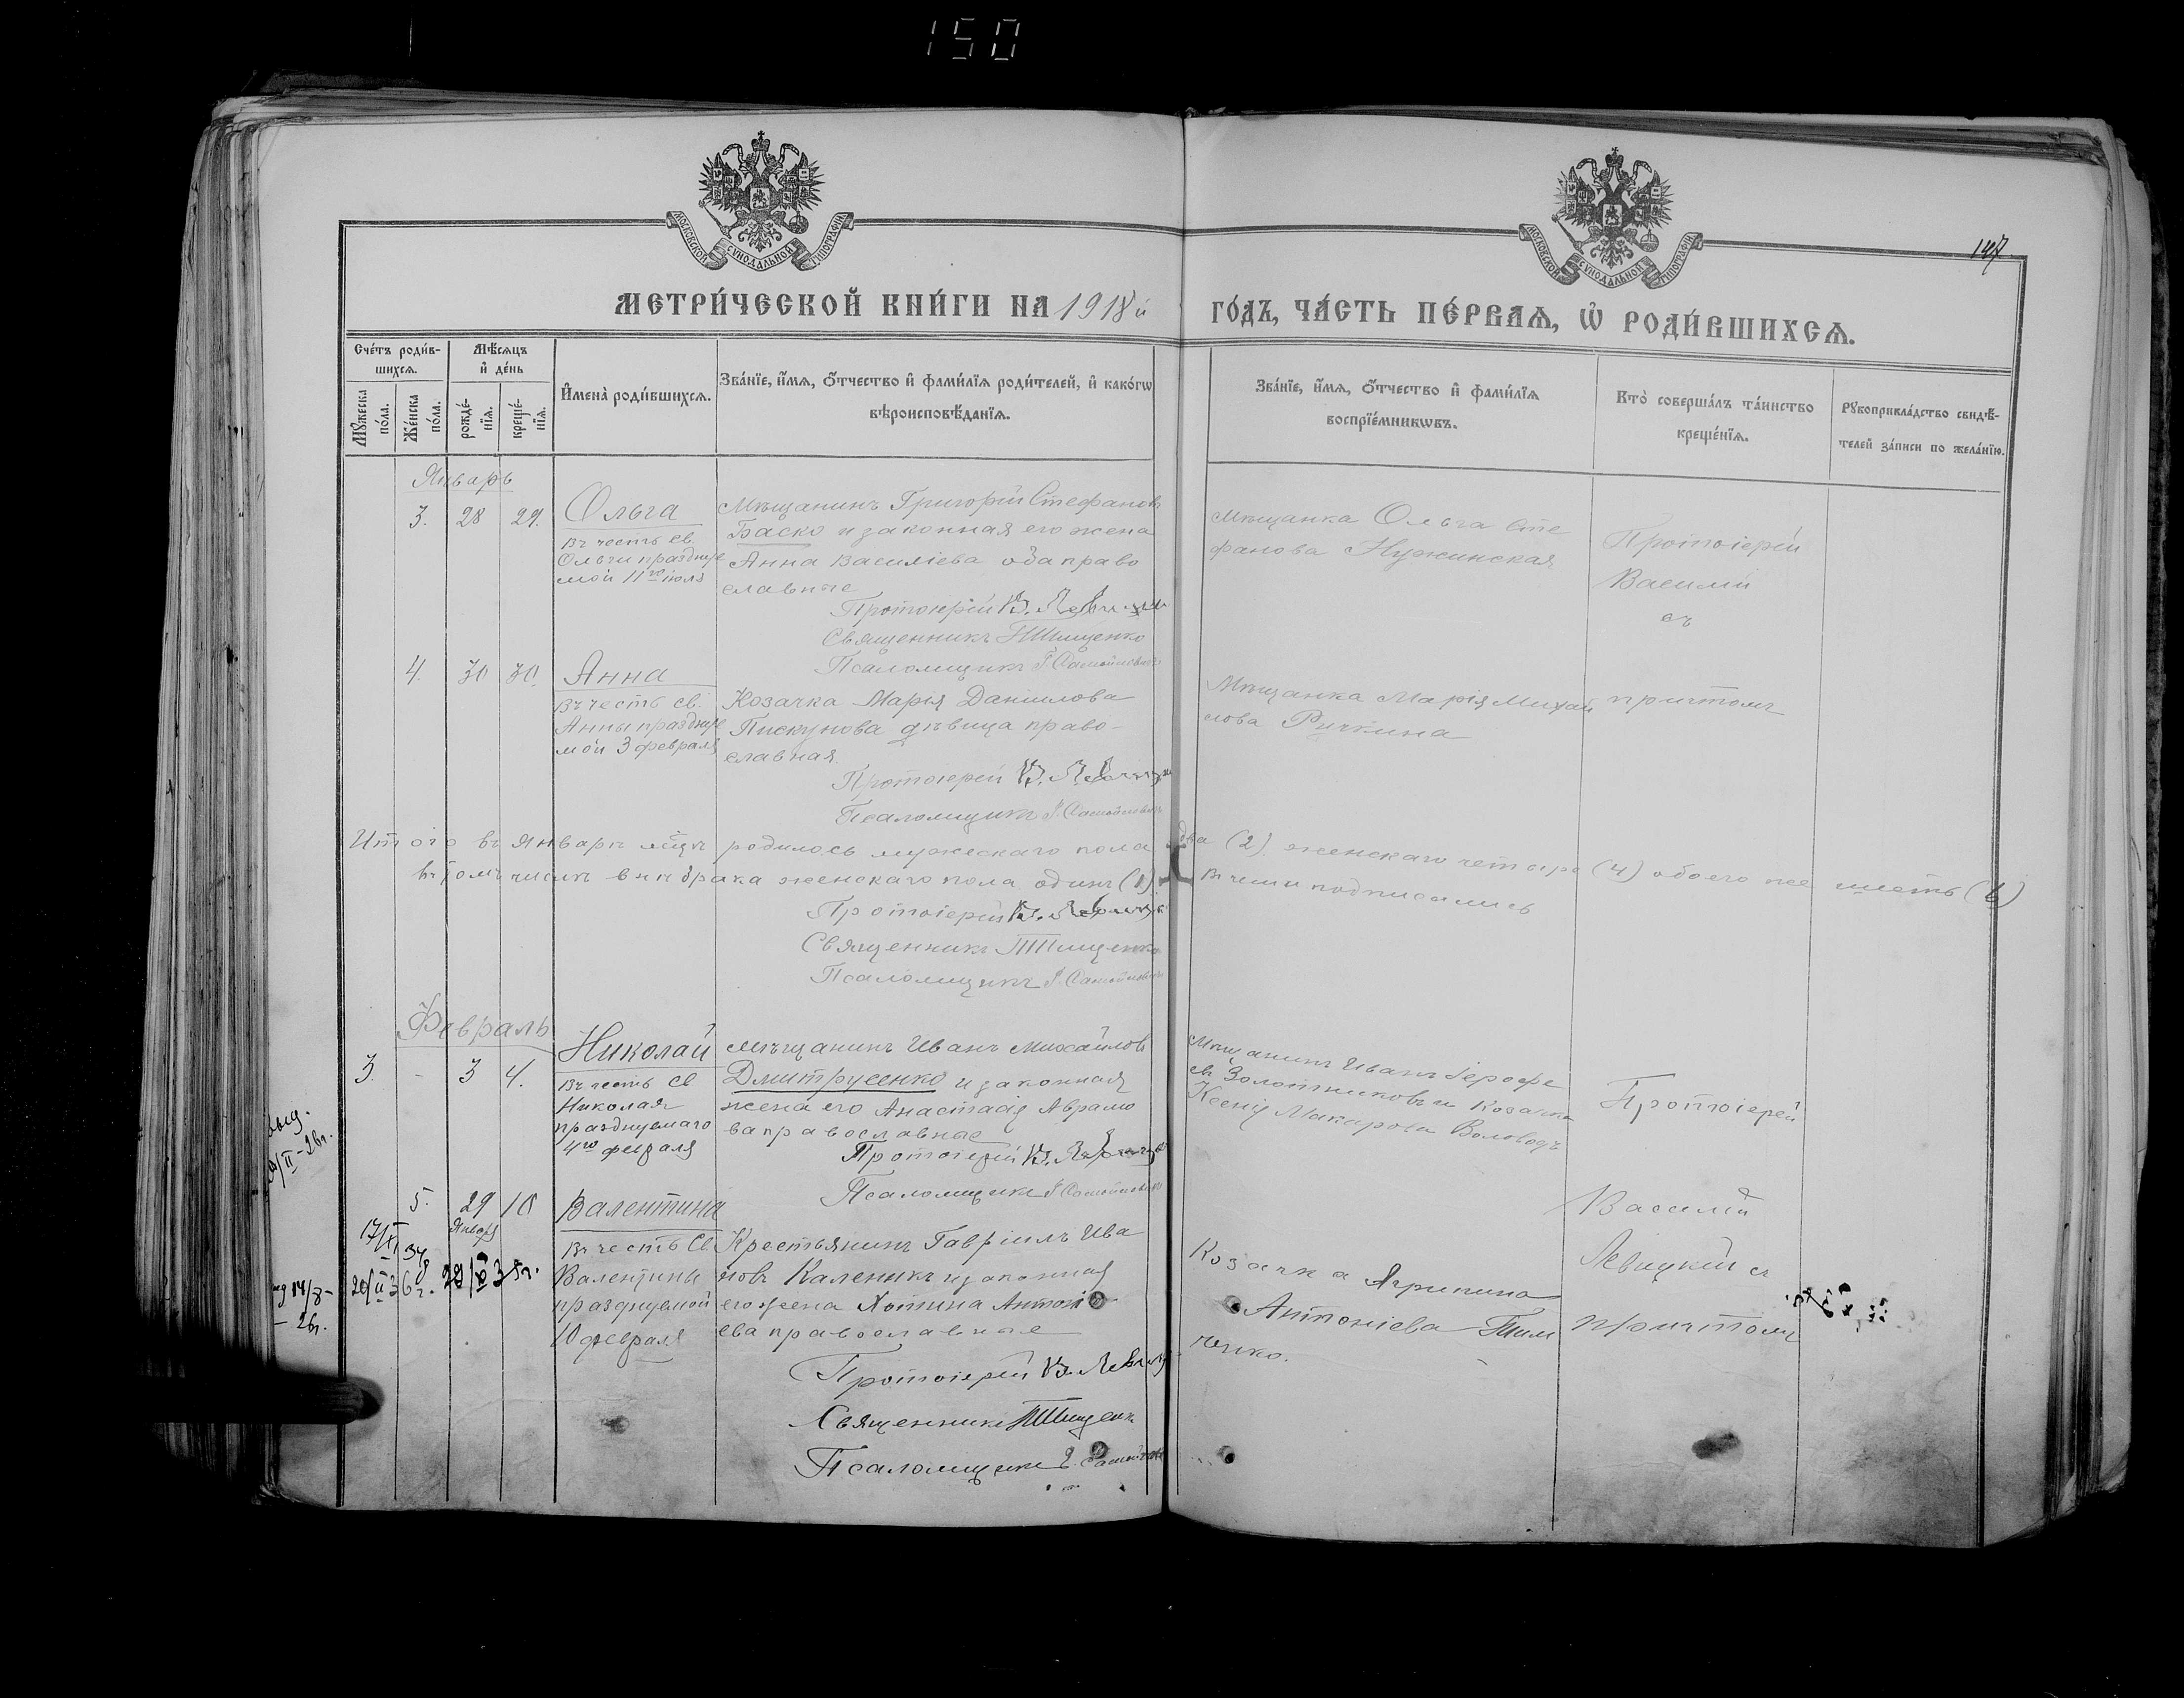 150
МОСКОВСКОЙ СѴНОДАЛЬНОЙ ТИПОГРАФІИ
МОСКОВСКОЙ СѴНОДАЛЬНОЙ ТИПОГРАФІИ
147
МЕТРИ́ЧЕСКОЙ КНИ́ГИ НА 1918й
ГО́ДЪ, ЧА́СТЬ ПЕ́РВАѦ, Ѽ РОДИ́ВШИХСѦ.
Сче́тъ роди́в-
шихсѧ.
Мꙋ́жеска по́ла.
Же́нска по́ла.
Мѣ́сѧцъ
и҆ де́нь
рожде́-
нїѧ.
креще́-
нїѧ.
И҆мена̀ роди́вшихсѧ.
Зва́нїе, и҆́мѧ, ѻ҆́тчество и҆ фами́лїѧ роди́телей, и҆ како́гѡ
вѣроисповѣ́данїѧ.
Зва́нїе, и҆́мѧ, ѻ҆́тчество и҆ фами́лїѧ
воспрїе́мникѡвъ.
Кто̀ соверша́лъ та́инство
креще́нїѧ.
Рꙋкоприкла́дство свидѣ́-
телей за́писи по жела́нїю.
Январь
3. 28 29. Ольга
Въ честь св.
Ольги праздпуе
мой 11го іюля
Мѣщанинъ Григорій Стефановъ
Баско и законная его жена
Анна Василіева оба право
славные
Протоіерей В. Левицкій
Священникъ Тищенко
Псаломщикъ Самойловичъ
Мѣщанка Ольга Сте
фанова Нужинская
Протоіерей
Василій
съ
4. 30 30. Анна
Въ честь св.
Анны празднуе
мой 3 февраля
Козачка Марія Даниилова
Пискунова дѣвица право-
славная
Протоіерей В. Левицкій
Псаломщикъ Самойловичъ
Мѣщанка Марія Михай
лова Ричкина
причтомъ
Итого въ Январѣ мѣцѣ родилось мужескаго пола два (2) женскаго четыре (4) обоего же шесть (6)
въ томъ числѣ внѣ брака женскаго пола одинъ (1) Въ чемъ и подписались
Протоіерей В. Левицкій
Священникъ Тищенко
Псаломщикъ Самойловичъ
Февраль
3. - 3 4. Николай
Въ честь св
Николая
празднуемаго
4го февраля
Мѣщанинъ Иванъ Михайловъ
Дмитрусенко и законная
жена его Анастасія Аврамо
ва православные
Протоіерей В. Левицкій
Псаломщикъ Самойловичъ
Мѣщанинъ Иванъ Іерофе
евъ Золотниковъ и Козачка
Ксенія Макарова Воловодъ
Протоіерей
/II-26г.
5. 29 10 Валентина
Января
17/XI 34
20/II 36г.
14/8-
- 26г.
Въ честь Св
Валентины
празднуемой
10 февраля
Крестьянинъ Гавріилъ Ива
новъ Каленикъ и законная
его жена Хотина Антоні
ева православные
Протоіерей В. Левицкій
Священникъ Тищенк
Псаломщикъ Самойлов
Козачка Агрипина
Антоніева Тим
ченко.
Василій
Левицкій съ
причтомъ